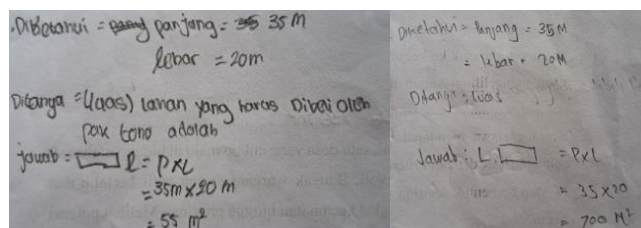 Diketahui = panjang = 35 M
lebar = 20m
Ditanya = L(uas) lahan yang harus Dibeli oleh
pak tono adalah
jawab = L = P x L
= 35m x 20 m
= 55 m²
Diketahui = Panjang = 35M
= lebar = 20M
Ditany : luas
Jawab : L = P x L
= 35 x 20
= 700 M²